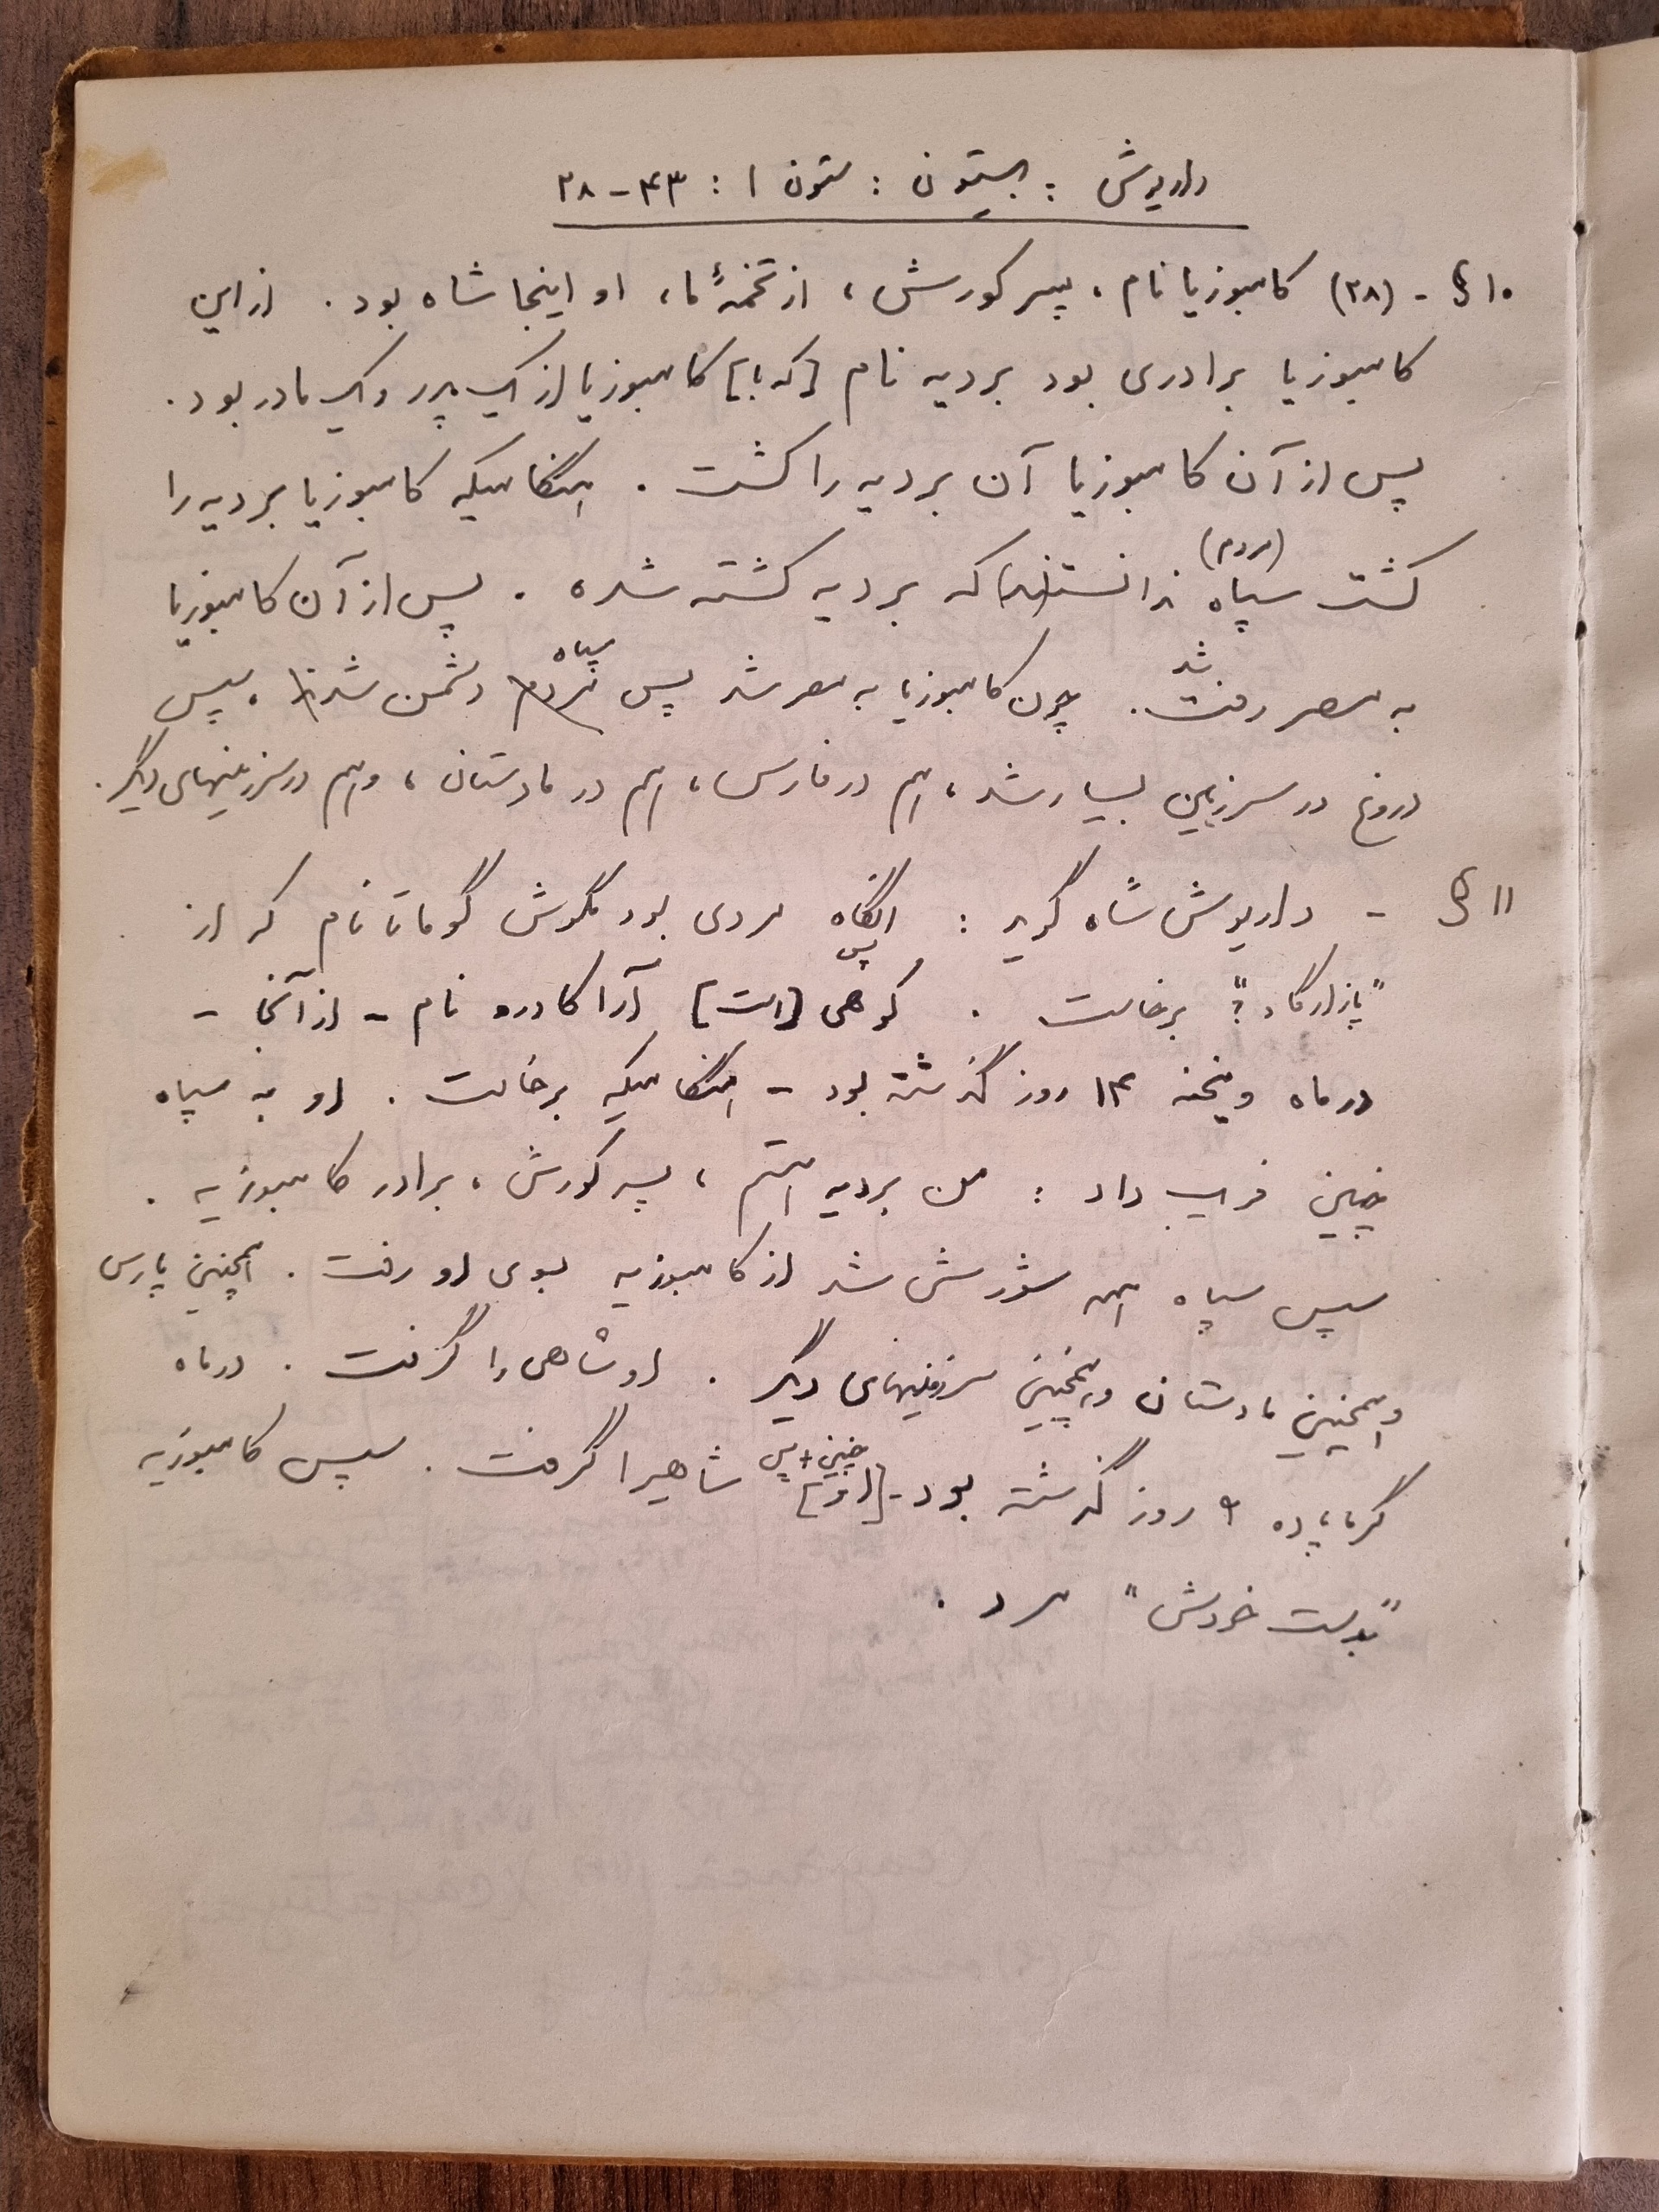 داریوش : بیستون : ستون ۱ : ۴۳-۲۸
§ ۱۰ - (۲۸) کامبوزیا نام ، پسر کورش ، از تخمهٔ ما ، او اینجا شاه بود . از این
کامبوزیا برادری بود بردیه نام [که با] کامبوزیا از یک پدر و یک مادر بود .
پس از آن کامبوزیا آن بردیه را کشت . هنگامیکه کامبوزیا بردیه را
(مردم)
کشت سپاه ندانست(ند) که بردیه کشته شده . پس از آن کامبوزیا
شد سپاه
به مصر رفت . چون کامبوزیا به مصر شد پس مردم دشمن شدند ، سپس
دروغ در سرزمین بسیار شد ، هم در فارس ، هم در مادستان ، و هم در سرزمینهای دیگر .
§ ۱۱ - داریوش شاه گوید : آنگاه مردی بود مگوش گوماتا نام که از
پس
"پازارگاد؟" برخاست . کوهی [است] آراکادرو نام - از آنجا -
در ماه ویخنه ۱۴ روز گذشته بود - هنگامیکه برخاست . او به سپاه
چنین فریب داد : من بردیه هستم ، پسر کورش ، برادر کامبوزیه .
سپس سپاه همه شورشی شد از کامبوزیه بسوی او رفت . همچنین پارس
و همچنین مادستان و همچنین سرزمینهای دیگر . او شاهی را گرفت . در ماه
چنین + پس
گرماپده ۹ روز گذشته بود - [او] شاهیرا گرفت . سپس کامبوزیه
"بدست خودش" مرد .